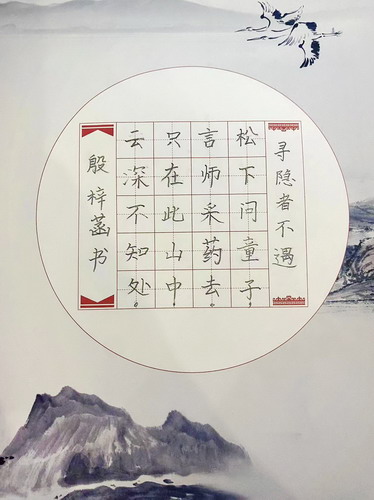 寻隐者不遇
松下问童子。
言师采药去。
只在此山中。
云深不知处。
殷梓菡书